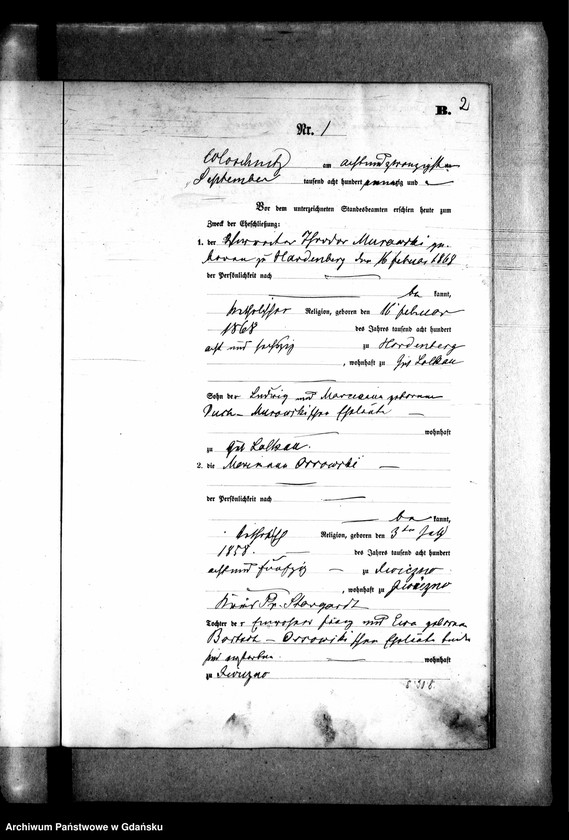 B. 2
Nr. 1
am achtundzwanzigsten
September tausend acht hundert neunzig und
Vor dem unterzeichneten Standesbeamten erschien heute zum
Zweck der Eheschließung:
1. der Theodor Murawski ge-
boren zu Hardenberg den 16 februar 1868
der Persönlichkeit nach
be kannt,
katholischer Religion, geboren den 16 februar
1868 des Jahres tausend acht hundert
acht und sechszig zu Hardenberg
, wohnhaft zu Gut Lalkau
Sohn der Ludwig und Marianna geborenen
Murawskischen Eheleute
wohnhaft
zu Gut Lalkau.
2. die Marianna Ossowski
der Persönlichkeit nach
be kannt,
katholisch Religion, geboren den 3ten July
1858. des Jahres tausend acht hundert
achtund fünfzig zu
, wohnhaft zu
Kreis Pr. Stargardt
Tochter der und Ewa geborene
Ossowskischen Eheleute beide
wohnhaft
zu
Archiwum Państwowe w Gdańsku